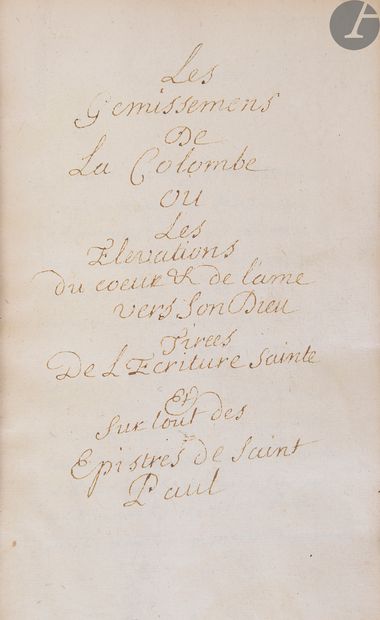 Les
Gemissemens
De
La Colombe
ou
Les
Elevations
du coeur & de l'ame
vers Son Dieu
Tirees
De L Ecriture Sainte
Et
Sur tout des
Epistres de Saint
Paul